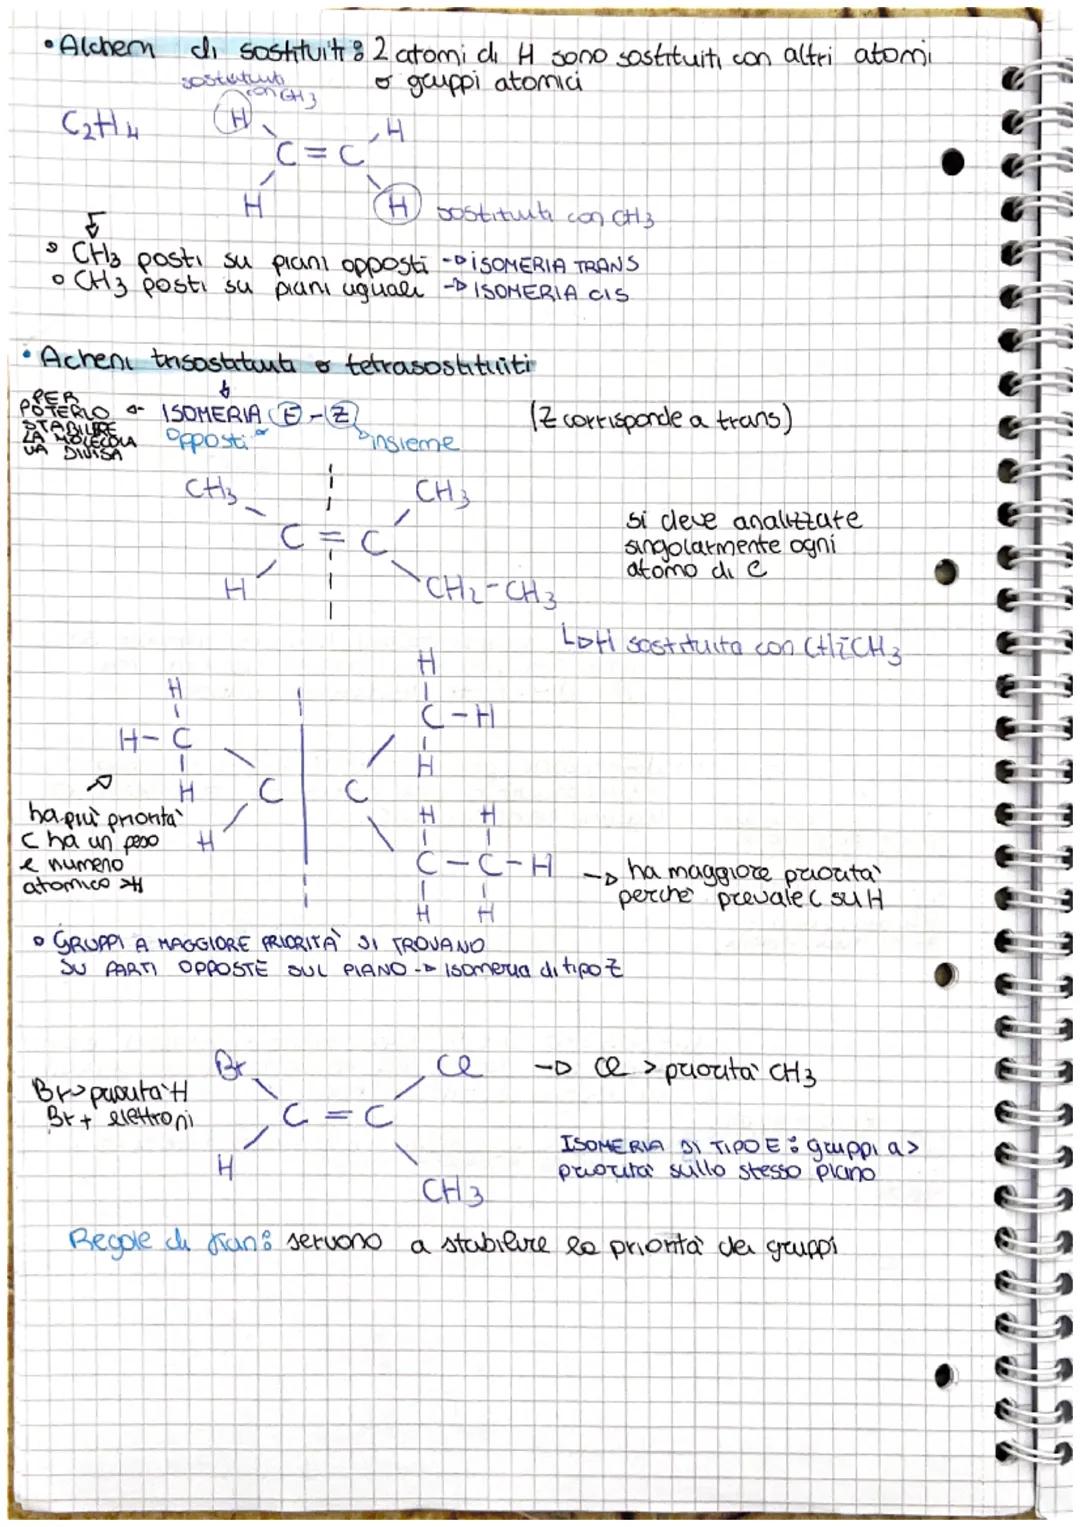 • Alcheni di sostituiti: 2 atomi di H sono sostituiti con altri atomi
o gruppi atomici
sostituiti
con CH3
C2H4
H H
C = C
H H sostituiti con CH3
° CH3 posti su piani opposti -> ISOMERIA TRANS
° CH3 posti su piani uguali -> ISOMERIA CIS
• Acheni trisostituiti o tetrasostituiti
PER
POTERLO
STABILIRE
LA MOLECOLA
VA DIVISA
ISOMERIA E - Z
(Z corrisponde a trans)
opposti insieme
CH3 CH3
C = C
H CH2-CH3
si deve analizzate
singolarmente ogni
atomo di C
L> H sostituita con CH2CH3
H
H C-H
H-C H
H C C
H H H
C-C-H
H H
ha più priorità
C ha un peso
e numero
atomico >H
-> ha maggiore priorità
perche' prevale C su H
° GRUPPI A MAGGIORE PRIORITÀ SI TROVANO
SU PARTI OPPOSTE SUL PIANO -> isomeria di tipo Z
Br Cl -> Cl > priorità CH3
Br> priorità H
Br + elettroni
C = C
H CH3
ISOMERIA DI TIPO E: gruppi a >
priorità sullo stesso piano
Regole di : servono a stabilire la priorità dei gruppi